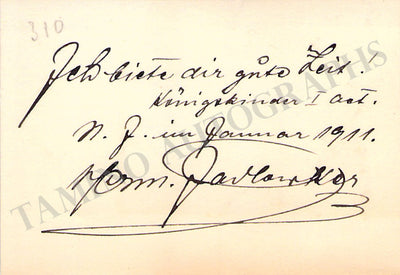 310
Ich biete dir gute Zeit!
Königskinder I act.
N. J. im Januar 1911.
Herm. Jadlowker
TAMINO AUTOGRAPHS